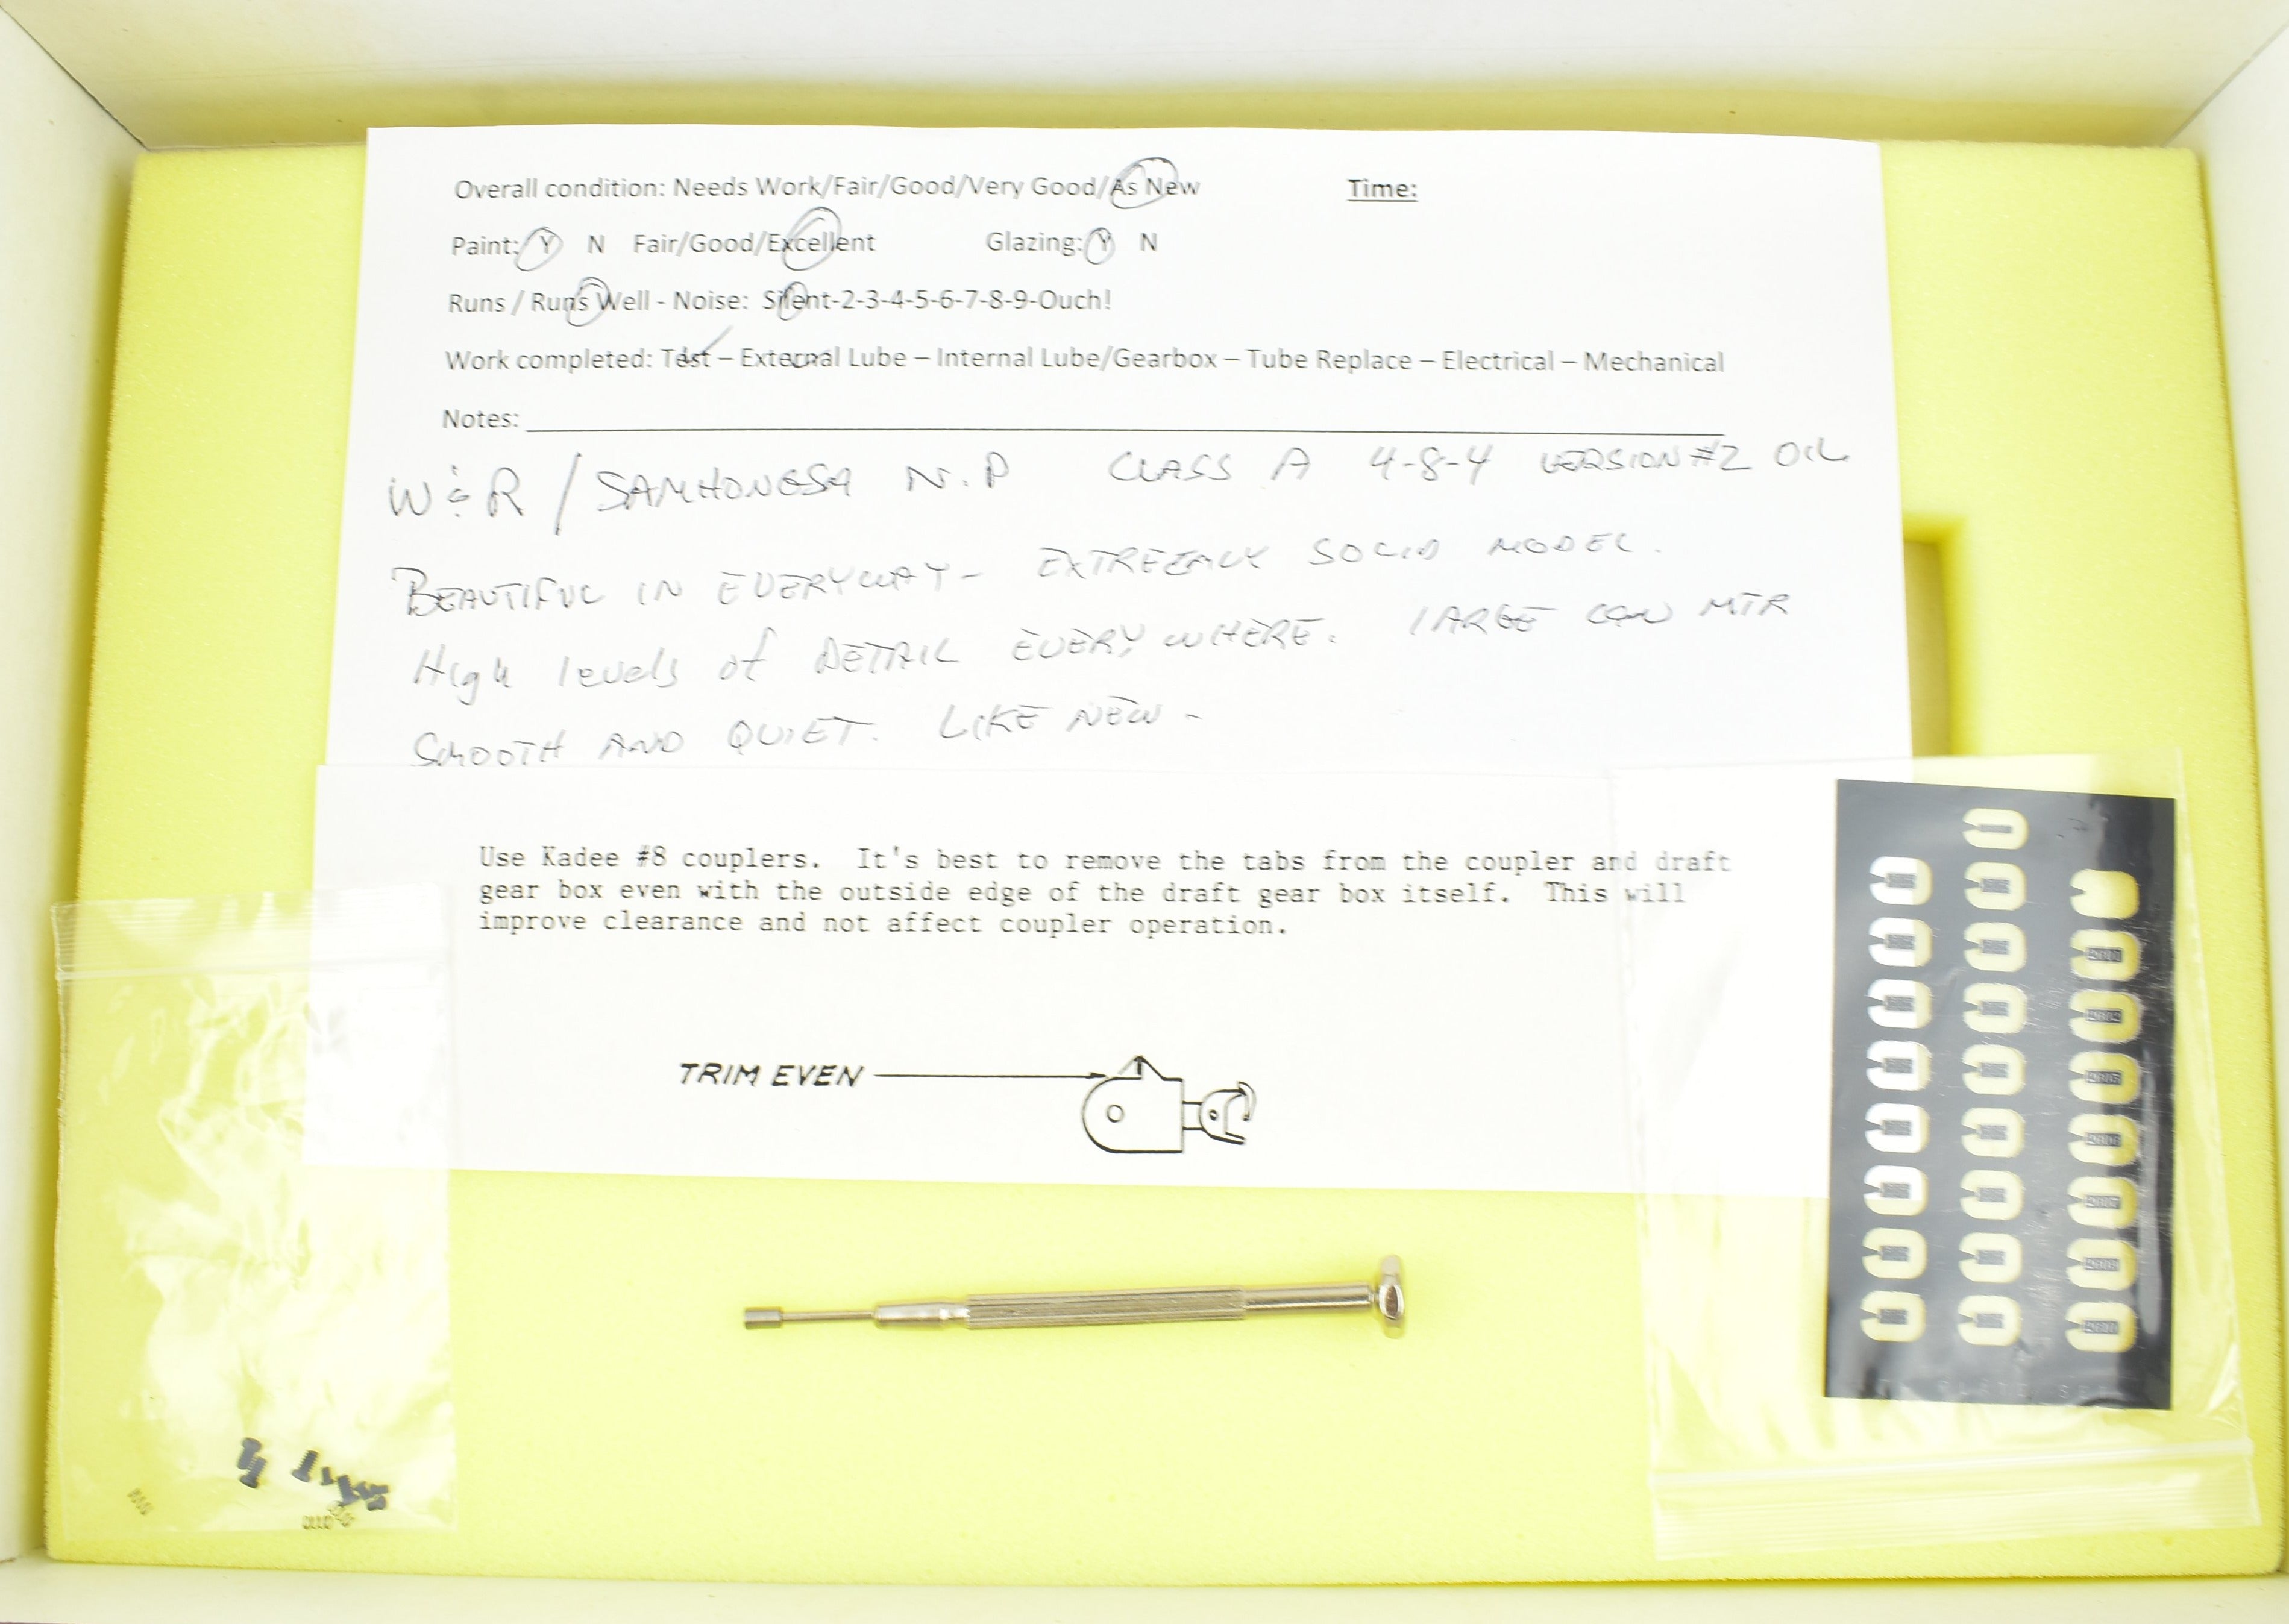 Overall condition: Needs Work/Fair/Good/Very Good/As New Time:
Paint: Y N Fair/Good/Excellent Glazing: Y N
Runs / Runs Well - Noise: Silent-2-3-4-5-6-7-8-9-Ouch!
Work completed: Test – External Lube – Internal Lube/Gearbox – Tube Replace – Electrical – Mechanical
Notes:
W & R / SAMHONGSA N.P CLASS A 4-8-4 VERSION #2 OIL
BEAUTIFUL IN EVERYWAY - EXTREEMLY SOLID MODEL.
HIgh levels of DETAIL EVERYWHERE. LARGE CAN MTR
SMOOTH AND QUIET. LIKE NEW -
Use Kadee #8 couplers. It's best to remove the tabs from the coupler and draft
gear box even with the outside edge of the draft gear box itself. This will
improve clearance and not affect coupler operation.
TRIM EVEN